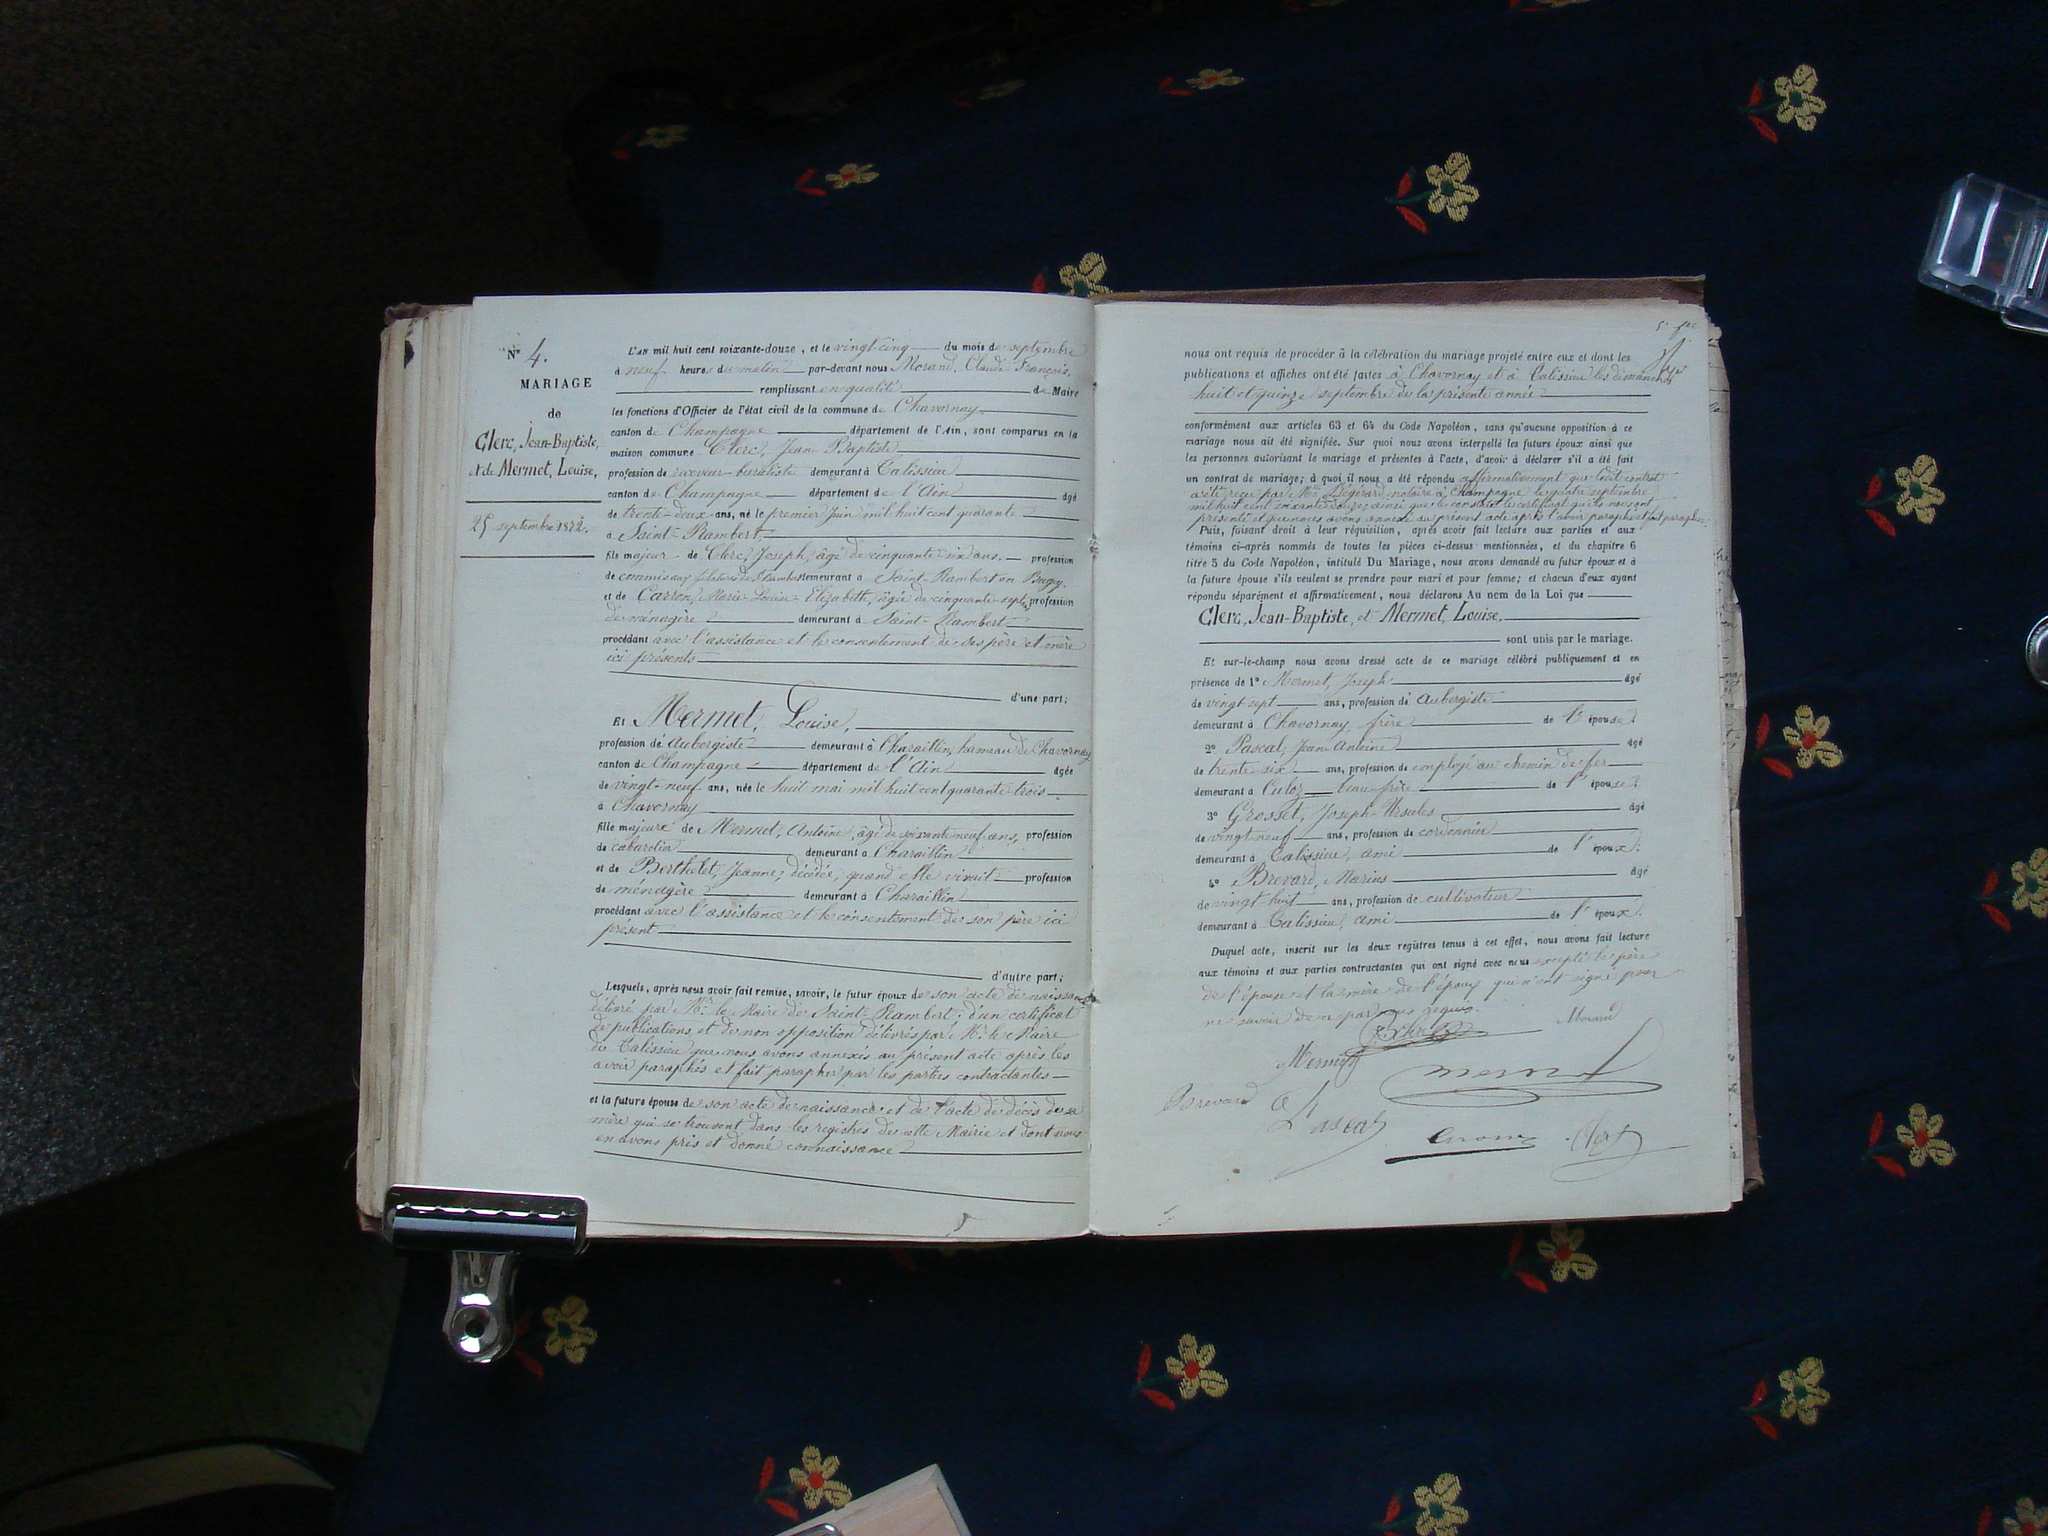 N° 4.
MARIAGE
de
Clerc, Jean-Baptiste,
et de Mermet, Louise,
25 septembre 1872.
L'AN mil huit cent soixante-douze, et le vingt-cinq du mois de septembre
à neuf heures du matin par-devant nous Morand, Claude François,
remplissant en qualité de Maire
les fonctions d'Officier de l'état civil de la commune de Chavornay
canton de Champagne département de l'Ain, sont comparus en la
maison commune Clerc, Jean Baptiste
profession de receveur buraliste demeurant à Talissieu
canton de Champagne département de l'Ain âgé
de trente-deux ans, né le premier Juin mil huit cent quarante
à Saint-Rambert,
fils majeur de Clerc, Joseph, âgé de cinquante six ans, profession
de commis aux demeurant à Saint-Rambert en Bugey,
et de Carron, Marie-Louise-Elizabeth, âgée de cinquante-sept, profession
de ménagère demeurant à Saint-Rambert
procédant avec l'assistance et le consentement de ses père et mère
ici présents
d'une part;
Et Mermet, Louise,
profession de Aubergiste demeurant à Charaillin, hameau de Chavornay
canton de Champagne département de l'Ain âgée
de vingt-neuf ans, née le huit mai mil huit cent quarante trois
à Chavornay
fille majeure de Mermet, Antoine, âgé de soixante neuf ans, profession
de cabaretier demeurant à Charaillin
et de Berthelet, Jeanne, décédée, quand elle vivait profession
de ménagère demeurant à Charaillin
procédant avec l'assistance et le consentement de son père ici
présent
d'autre part;
Lesquels, après nous avoir fait remise, savoir, le futur époux de son acte de naissance
délivré par Mr le Maire de Saint-Rambert; d'un certificat
de publications et de non opposition délivrés par Mr le Maire
de Talissieu que nous avons annexés au présent acte après les
avoir paraphés et fait parapher par les parties contractantes
et la future épouse de son acte de naissance et de l'acte de décès de sa
mère qui se trouvent dans les registres de cette Mairie et dont nous
en avons pris et donné connaissance
nous ont requis de procéder à la célébration du mariage projeté entre eux et dont les
publications et affiches ont été faites à Chavornay et à Talissieu les dimanches
huit et quinze septembre de la présente année
conformément aux articles 63 et 64 du Code Napoléon, sans qu'aucune opposition à ce
mariage nous ait été signifiée. Sur quoi nous avons interpellé les futurs époux ainsi que
les personnes autorisant le mariage et présentes à l'acte, d'avoir à déclarer s'il a été fait
un contrat de mariage; à quoi il nous a été répondu affirmativement que ledit contrat
a été reçu par Me notaire à Champagne le quatre septembre
mil huit cent soixante douze, ainsi que le constate le certificat qu'ils nous ont
présenté et que nous avons annexé au présent acte après l'avoir paraphé et fait parapher.
Puis, faisant droit à leur réquisition, après avoir fait lecture aux parties et aux
témoins ci-après nommés de toutes les pièces ci-dessus mentionnées, et du chapitre 6
titre 5 du Code Napoléon, intitulé Du Mariage, nous avons demandé au futur époux et à
la future épouse s'ils veulent se prendre pour mari et pour femme; et chacun d'eux ayant
répondu séparément et affirmativement, nous déclarons Au nom de la Loi que
Clerc, Jean-Baptiste, et Mermet, Louise,
sont unis par le mariage.
Et sur-le-champ nous avons dressé acte de ce mariage célébré publiquement et en
présence de 1° Mermet, Joseph âgé
de vingt sept ans, profession de Aubergiste
demeurant à Chavornay, frère de l'épouse.
2° Pascal, Jean Antoine âgé
de trente-six ans, profession de employé au chemin de fer
demeurant à Culoz beau-frère de l'épouse.
3° Grosset, Joseph âgé
de vingt-neuf ans, profession de cordonnier
demeurant à Talissieu, ami de l'époux.
4° Brevard, Marius âgé
de vingt-huit ans, profession de cultivateur
demeurant à Talissieu, ami de l'époux.
Duquel acte, inscrit sur les deux registres tenus à cet effet, nous avons fait lecture
aux témoins et aux parties contractantes qui ont signé avec nous excepté le père
de l'épouse et la mère de l'époux qui n'ont signé pour
ne savoir de ce par nous requis.
Morand
Mermet
Mermet
Brevard
Pascal
Clerc